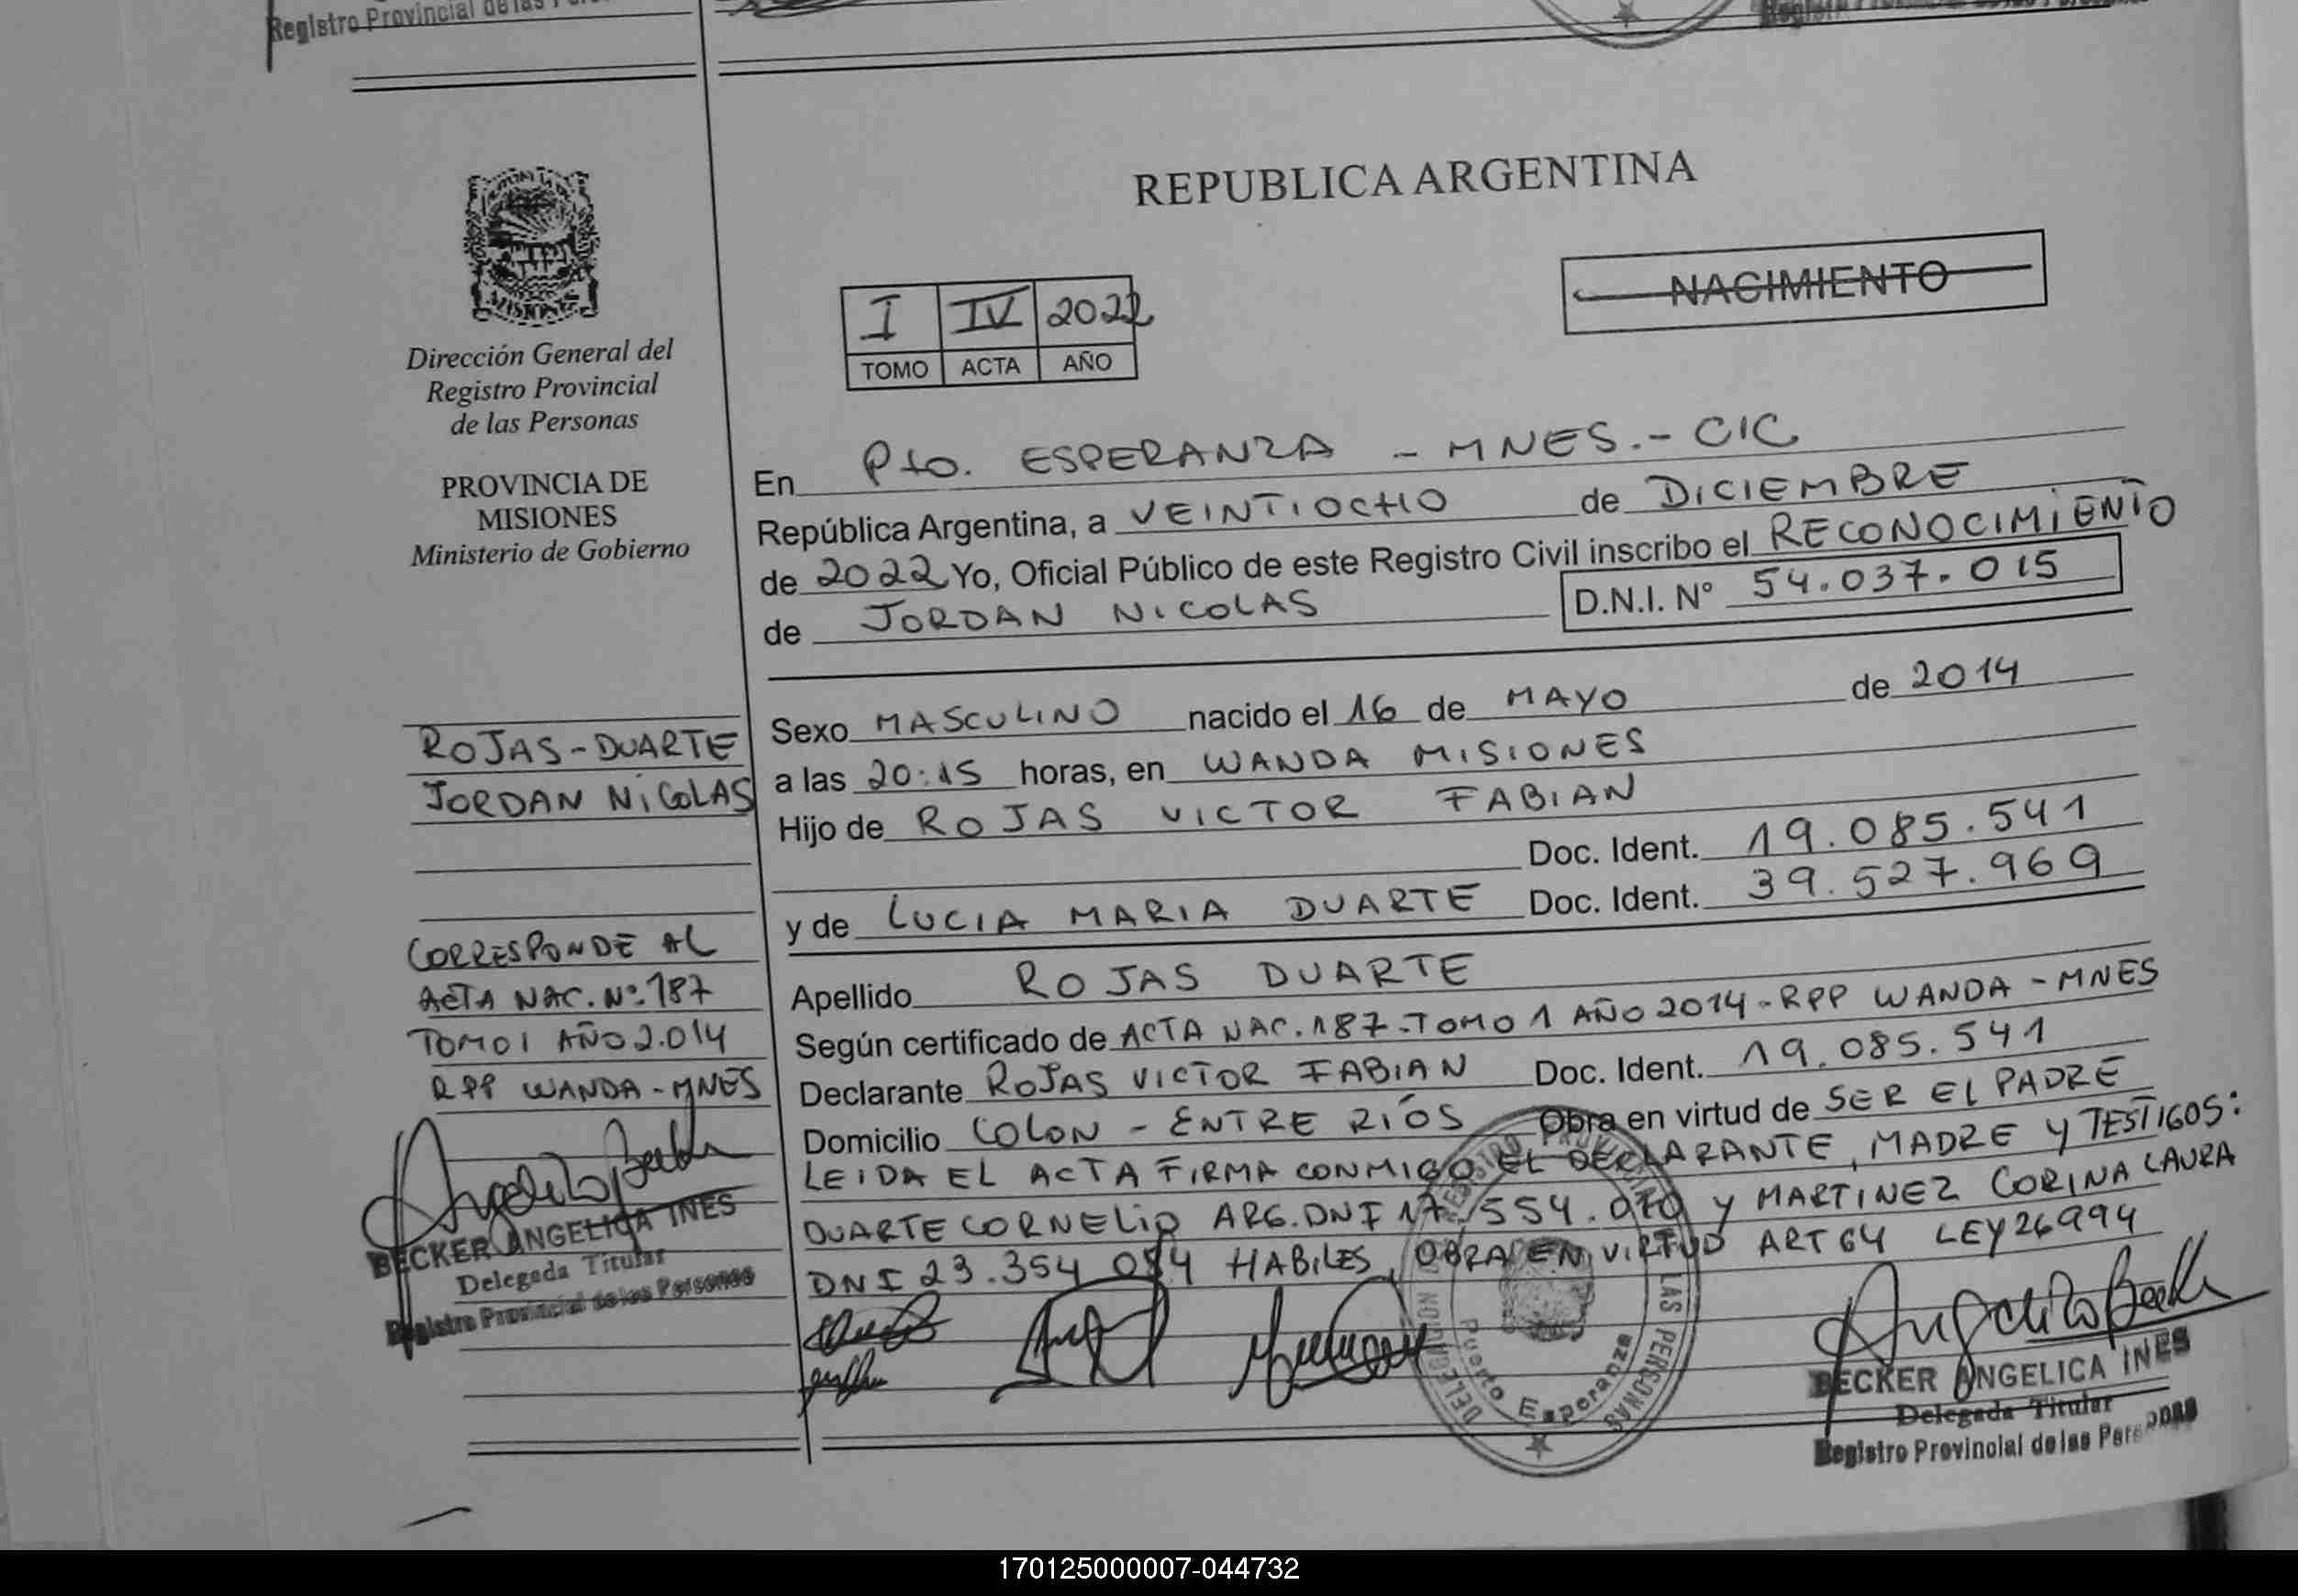 Registro Provincial de las
REPUBLICA ARGENTINA
NACIMIENTO
I IV 2022
TOMO ACTA AÑO
MISIONES
Dirección General del
Registro Provincial
de las Personas
PROVINCIA DE
MISIONES
Ministerio de Gobierno
ROJAS-DUARTE
JORDAN NICOLAS
CORRESPONDE AL
ACTA NAC. Nº. 187
TOMO I AÑO 2.014
RPP WANDA-MNES
BECKER ANGELICA INES
Delegada Titular
Registro Provincial de las Personas
En Pto. ESPERANZA - MNES.- CIC
República Argentina, a VEINTIOCHO de DICIEMBRE
de 2022 Yo, Oficial Público de este Registro Civil inscribo el RECONOCIMIENTO
de JORDAN NICOLAS D.N.I. N° 54.037.015
Sexo MASCULINO nacido el 16 de MAYO de 2014
a las 20:15 horas, en WANDA MISIONES
Hijo de ROJAS VICTOR FABIAN
Doc. Ident. 19.085.541
y de LUCIA MARIA DUARTE Doc. Ident. 39.527.969
Apellido ROJAS DUARTE
Según certificado de ACTA NAC. 187-TOMO 1 AÑO 2014-RPP WANDA - MNES
Declarante ROJAS VICTOR FABIAN Doc. Ident. 19.085.541
Domicilio COLON - ENTRE RIOS Obra en virtud de SER EL PADRE
LEIDA EL ACTA FIRMA CONMIGO EL DECLARANTE, MADRE Y TESTIGOS:
DUARTE CORNELIO ARG. DNI 17.554.070 Y MARTINEZ CORINA LAURA
DNI 23.354.054 HABILES, OBRA EN VIRTUD ART 64 LEY 26994
DELEGACION REGISTRO PROVINCIAL LAS PERSONAS
Puerto Esperanza
BECKER ANGELICA INES
Delegada Titular
Registro Provincial de las Personas
170125000007-044732